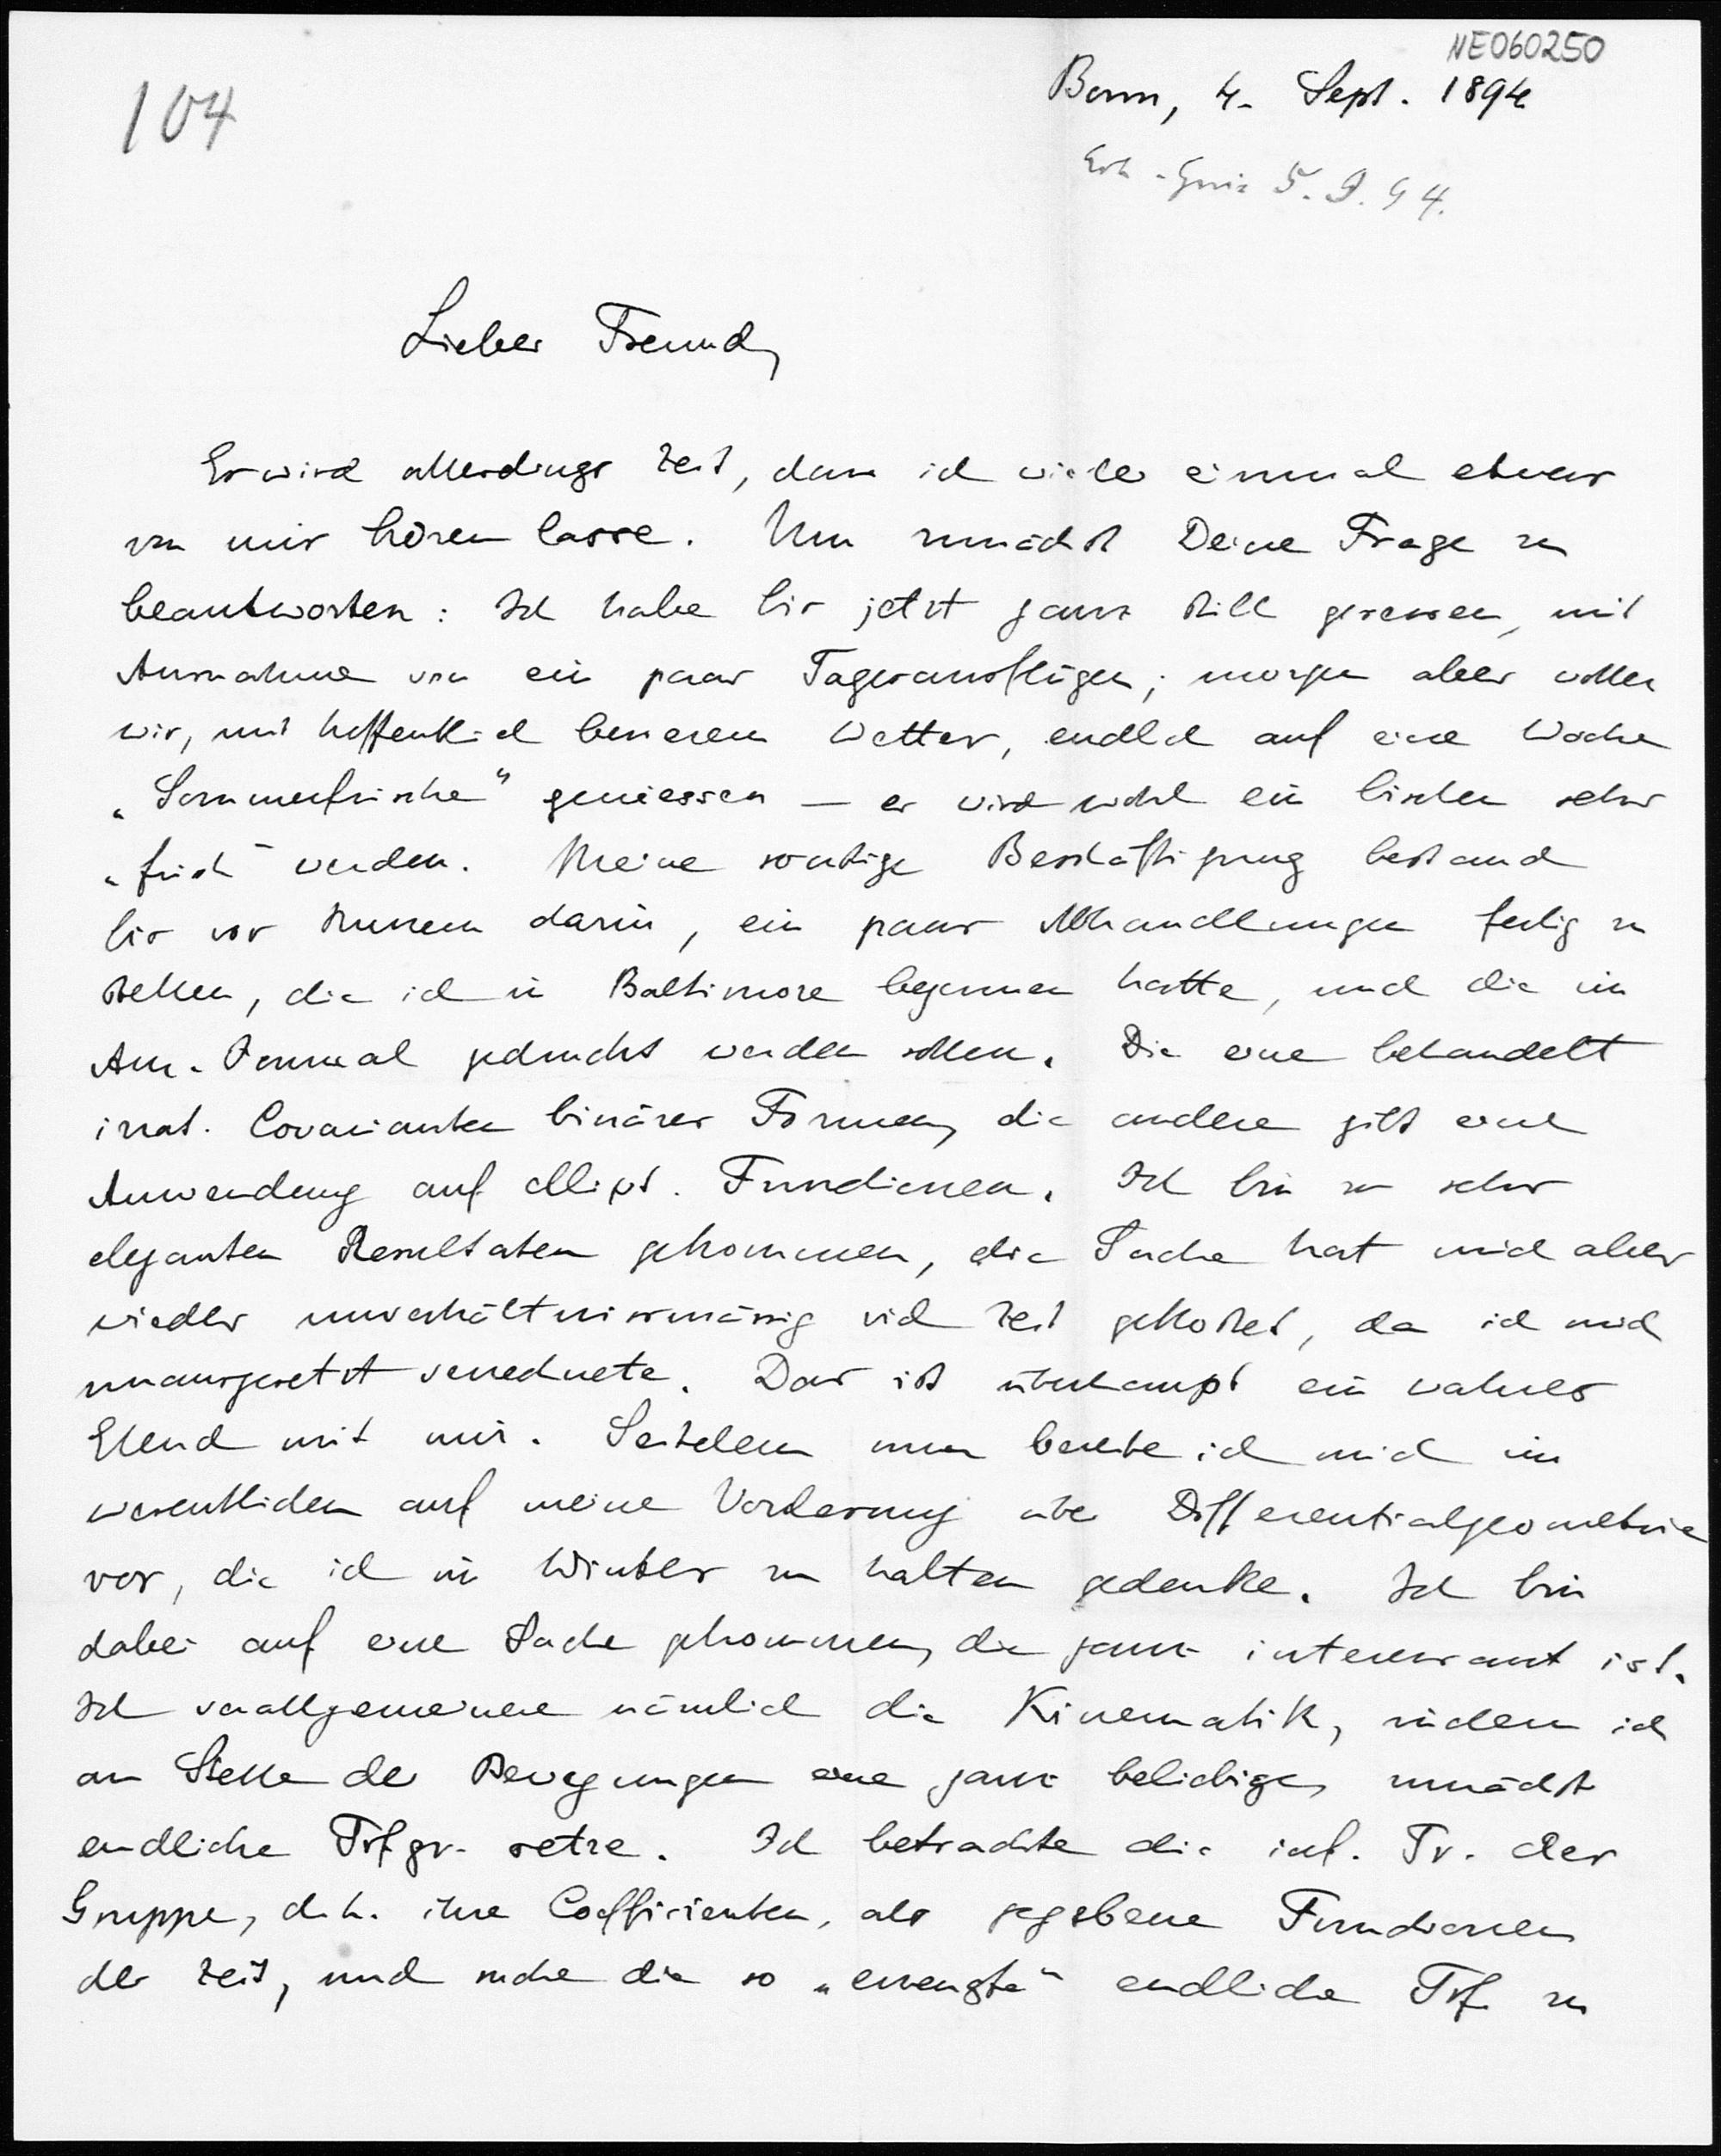 NE060250
104
Bonn, 4. Sept. 1894
5. 9. 94.
Lieber Freund,
Es wird allerdings Zeit, dass ich wieder einmal etwas
von mir hören lasse. Um zunächst Deine Frage zu
beantworten: Ich habe bis jetzt ganz still gesessen, mit
Ausnahme von ein paar Tagesausflügen; morgen aber wollen
wir, mit hoffentlich besserem Wetter, endlich auf eine Woche
„Sommerfrische“ geniessen — es wird wohl ein bischen sehr
„frisch“ werden. Meine sonstige Beschäftigung bestand
bis vor Kurzem darin, ein paar Abhandlungen fertig zu
stellen, die ich in Baltimore begonnen hatte, und die im
Am. Journal gedruckt werden sollen. Die eine behandelt
irrat. Covarianten binärer Formen, die andere gibt eine
Anwendung auf ellipt. Functionen. Ich bin zu sehr
eleganten Resultaten gekommen, die Sache hat mich aber
wieder unverhältnissmässig viel Zeit gekostet, da ich mich
unausgesetzt verrechnete. Das ist überhaupt ein wahres
Elend mit mir. Seitdem nun bereite ich mich im
wesentlichen auf meine Vorlesung über Differentialgeometrie
vor, die ich im Winter zu halten gedenke. Ich bin
dabei auf eine Sache gekommen, die ganz interessant ist.
Ich verallgemeinere nämlich die Kinematik, indem ich
an Stelle der Bewegungen eine ganz beliebige, zunächst
endliche Trfgr. setze. Ich betrachte die inf. Tr. der
Gruppe, d. h. ihre Coefficienten, als gegebene Functionen
der Zeit, und suche die so „erzeugte“ endliche Trf. zu